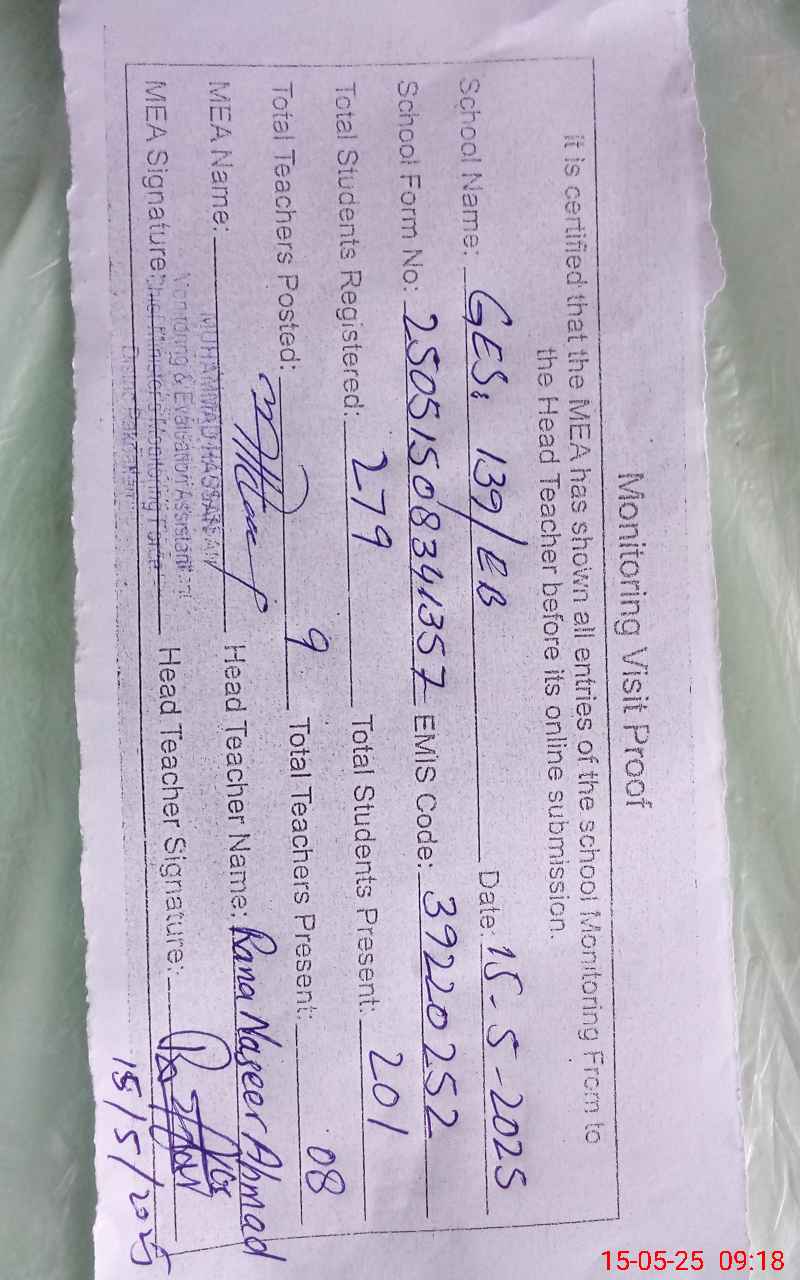 Monitoring Visit Proof
it is certified that the MEA has shown all entries of the school Monitoring From to
the Head Teacher before its online submission.
School Name: GES: 139/EB Date: 15-5-2025
School Form No: 25051508341357 EMIS Code: 39220252
Total Students Registered: 279 Total Students Present: 201
Total Teachers Posted: 9 Total Teachers Present: 08
MEA Name: Head Teacher Name: Rana Naseer Ahmad
MUHAMMAD HASSAN
Monitoring & Evaluation Assistant
MEA Signature: Chief Minister's Monitoring Force Head Teacher Signature:
District Pakpattan
15/5/2025
15-05-25 09:18